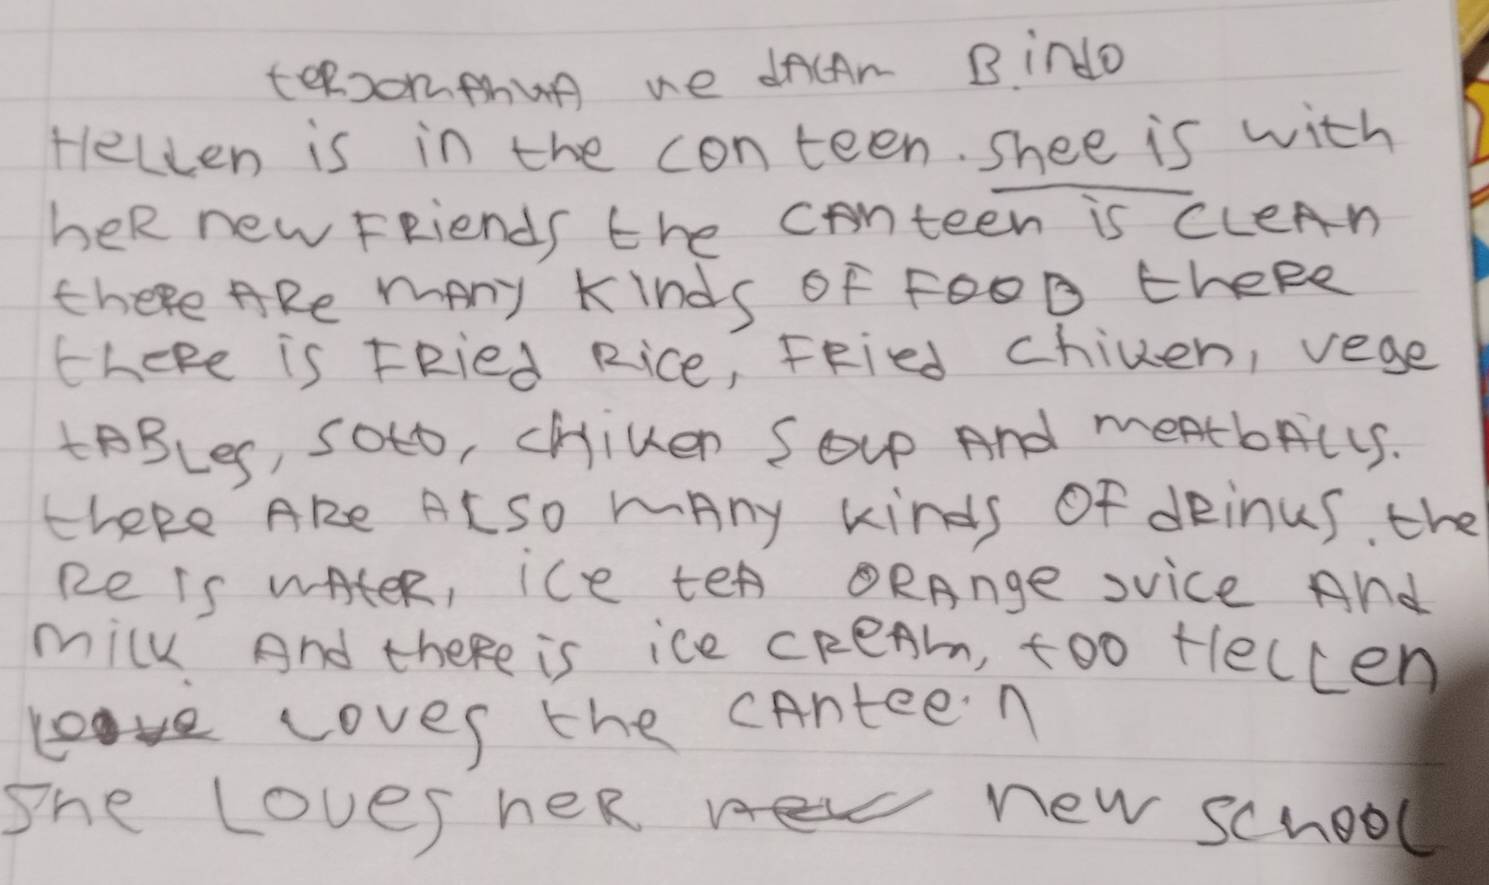 terjomahua ke dalam B.indo
Hellen is in the conteen. shee is with
her new Friends the canteen is clean
there are many kinds of food there
there is Fried Rice, Fried chiken, vege
tables, soto, chiken soup and meatballs.
there are also many kinds of drinks. the
re is water, ice tea orange juice and
milk. And there is ice cream, too Hellen
loves the canteen
She loves her new new school